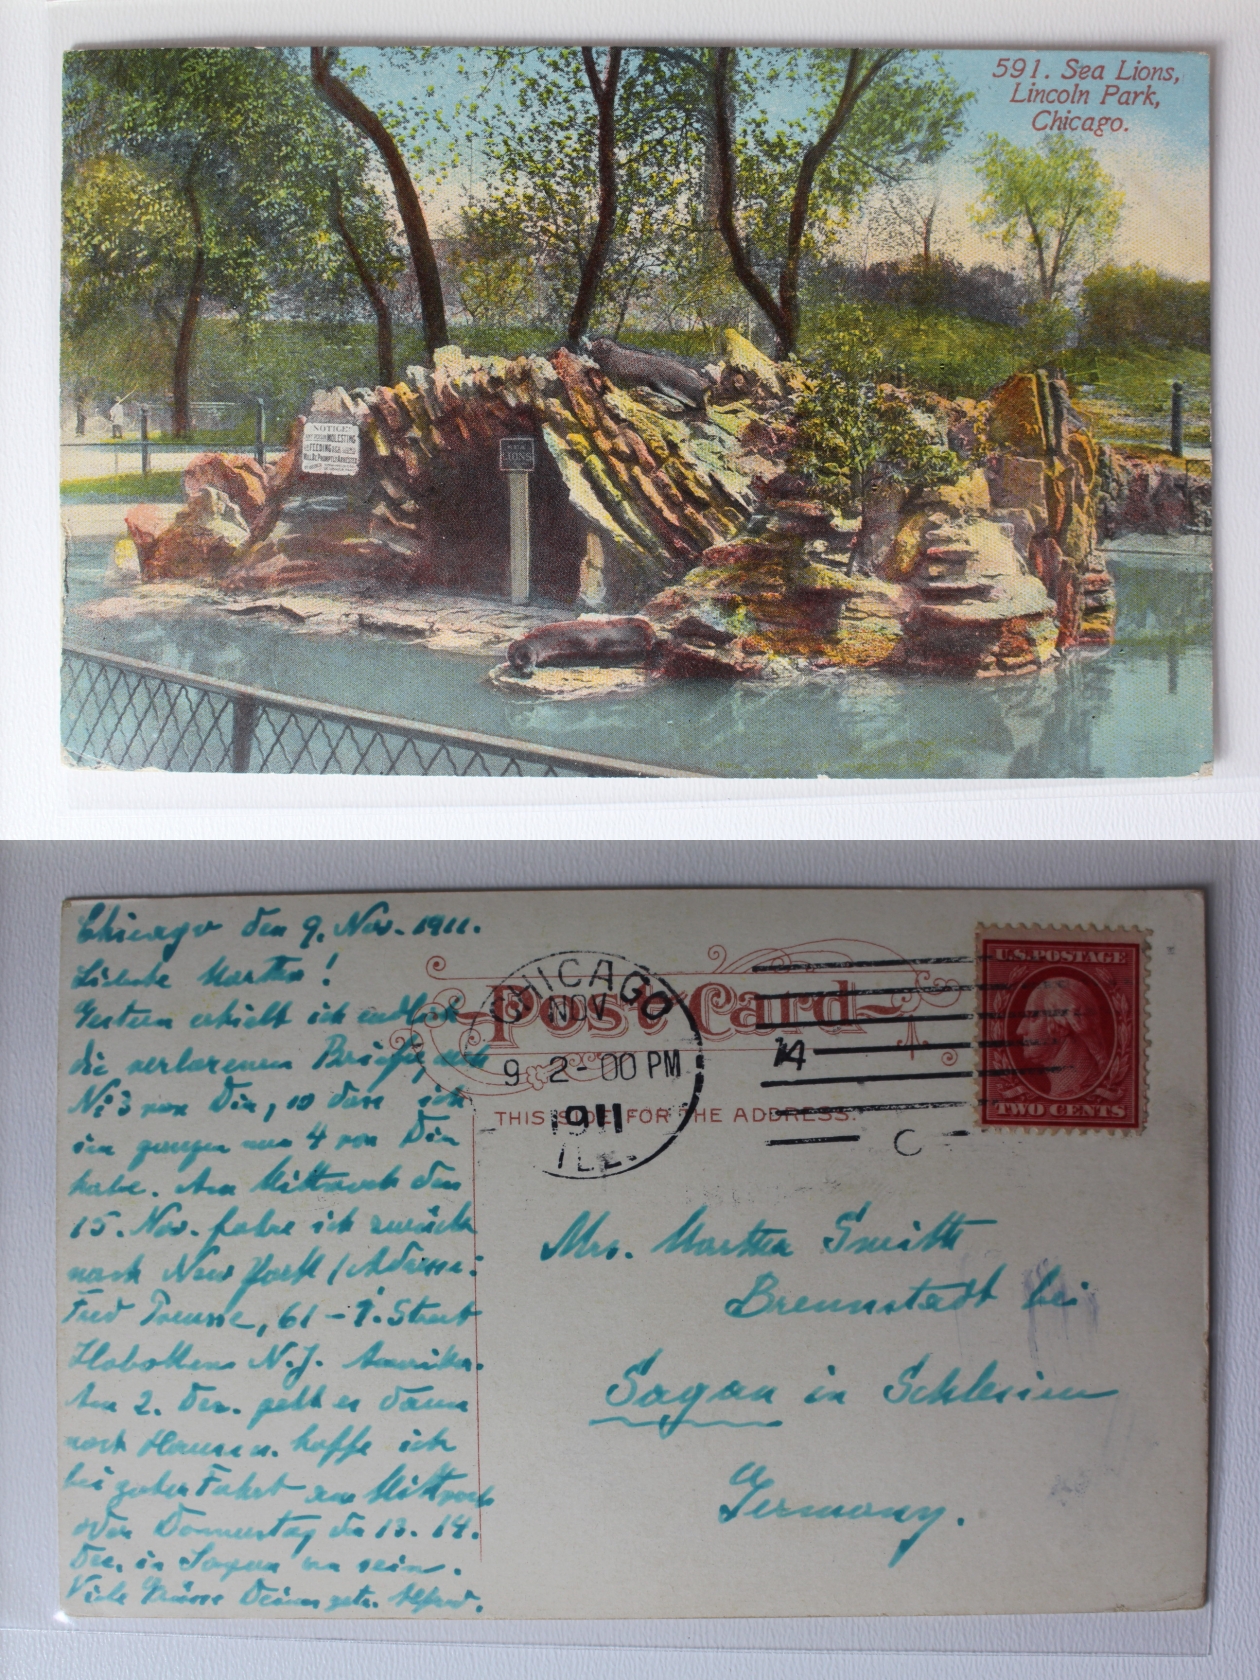 591. Sea Lions,
Lincoln Park,
Chicago.
NOTICE!
MOLESTING
FEEDING
SEA
LIONS
Chicago den 9. Nov. 1911.
Liebste Martha!
Gestern erhielt ich endlich
die verlorenen Briefe, auch
No 3 von Dir, so dass ich
im ganzen nun 4 von Dir
habe. Am Mittwoch den
15. Nov. fahre ich zurück
nach New York (Adresse:
Fred Preusse, 61 - 1. Street
Hoboken N.J. Amerika.
Am 2. Dez. geht es dann
nach Hause u. hoffe ich
bei guter Fahrt am Mittwoch
oder Donnerstag den 13. 14.
Dec. in Sagan zu sein.
Viele Grüsse Deines getr. Alfred.
Post Card
THIS SIDE FOR THE ADDRESS.
CHICAGO
NOV
9 2-00 PM
1911
ILL.
14
C
U.S. POSTAGE
TWO CENTS
Mrs. Martha Smith
Brennstadt bei
Sagan in Schlesien
Germany.